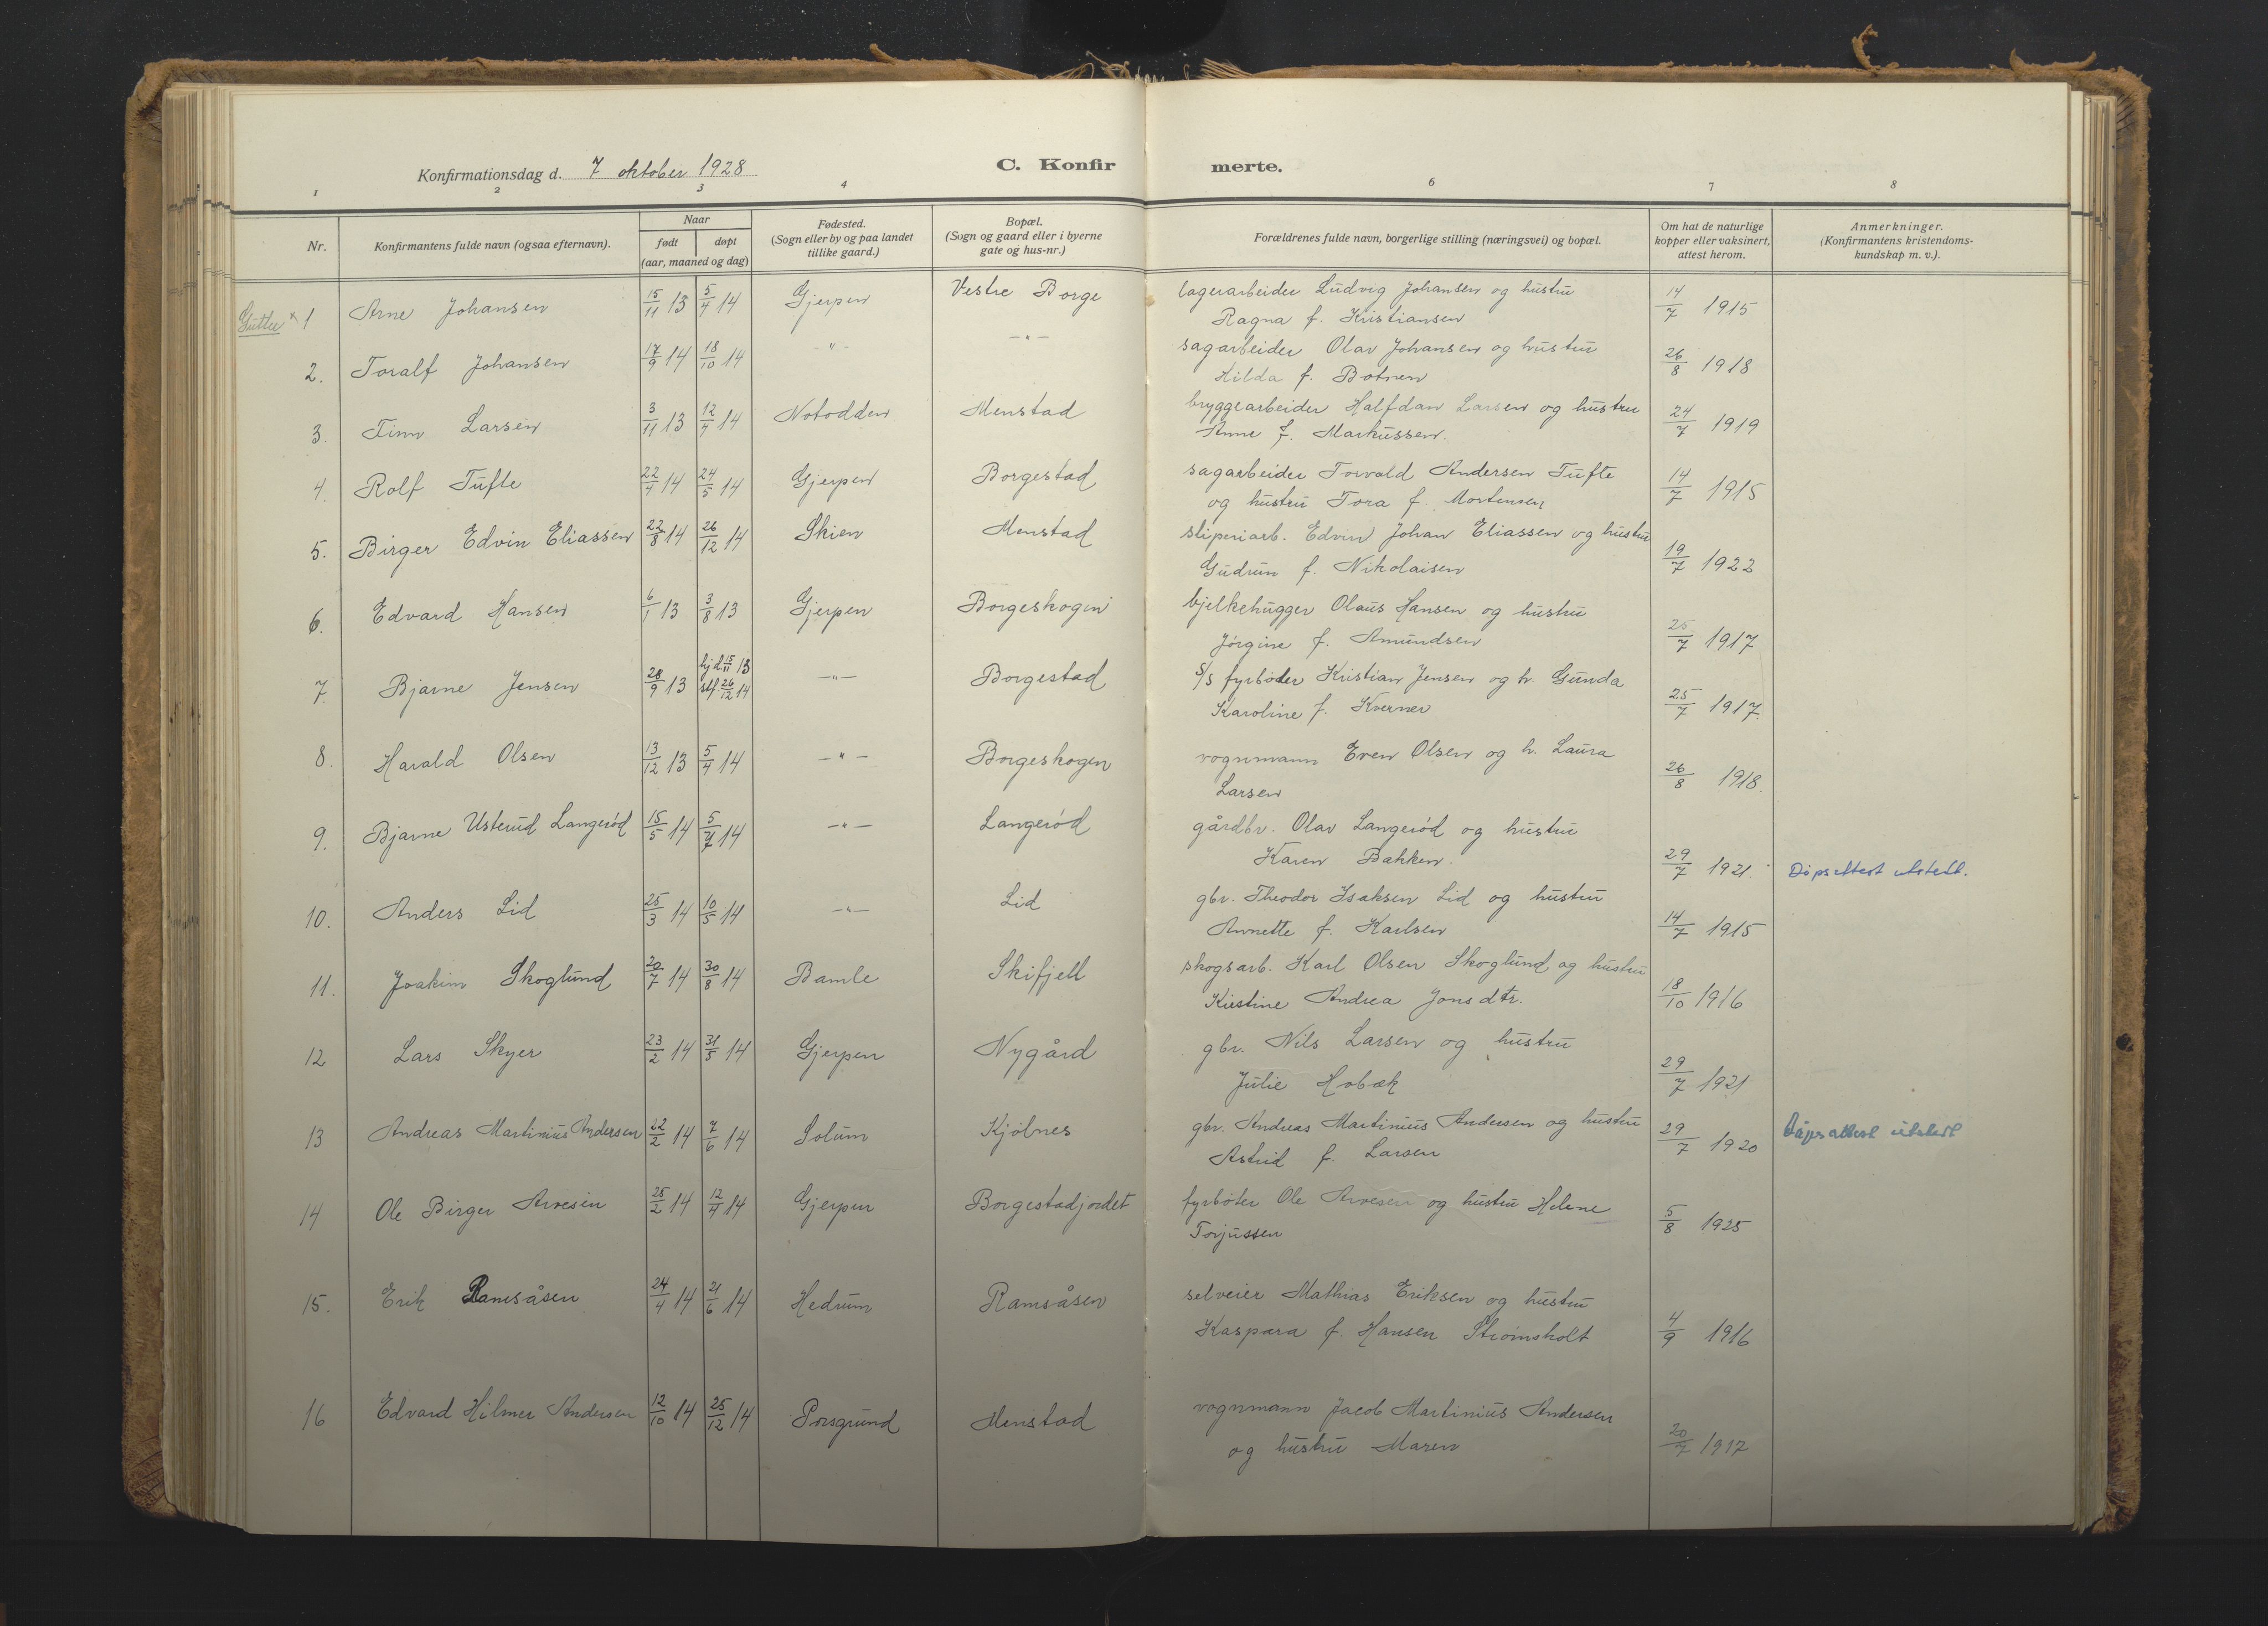 Konfirmationsdag d. 7 oktober 1928
C. Konfirmerte.
1 2 3 4 6 7 8
Nr.
Konfirmantens fulde navn (ogsaa efternavn).
Naar
født døpt
(aar, maaned og dag)
Fødested.
(Sogn eller by og paa landet
tillike gaard.)
Bopæl.
(Sogn og gaard eller i byerne
gate og hus-nr.)
Forældrenes fulde navn, borgerlige stilling (næringsvei) og bopæl.
Om hat de naturlige
kopper eller vaksinert,
attest herom.
Anmerkninger.
(Konfirmantens kristendoms-
kundskap m. v.).
Gutter × 1 Arne Johansen 15/11 13 5/4 14 Gjerpen Vestre Borge lagerarbeider Ludvig Johansen og hustru
Ragna f. Kristiansen 14/7 1915
2. Toralf Johansen 17/9 14 18/10 14 -"- -"- sagarbeider Olav Johansen og hustru
Hilda f. Botnen 26/8 1918
3. Finn Larsen 3/11 13 12/4 14 Notodden Menstad bryggearbeider Halfdan Larsen og hustru
Anne f. Markussen. 24/7 1919
4. Rolf Tufte 22/4 14 24/5 14 Gjerpen Borgestad sagarbeider Torvald Andersen Tufte
og hustru Tora f. Mortensen 14/7 1915
5. Birger Edvin Eliassen 22/8 14 26/12 14 Skien Menstad sliperiarb. Edvin Johan Eliassen og hustru
Gudrun f. Nikolaisen 19/7 1922
6. Edvard Hansen 6/1 13 3/8 13 Gjerpen Borgeskogen bjelkehugger Olaus Hansen og hustru
Jørgine f. Amundsen 25/7 1917
7. Bjarne Jensen 28/9 13 hj.d. 15/11 13 stf. 26/12 14 -"- Borgestad S/S fyrbøder Kristian Jensen og h. Gunda
Karoline f. Kverner 25/7 1917.
8. Harald Olsen 13/12 13 5/4 14 -"- Borgeskogen vognmann Even Olsen og h. Laura
Larsen 26/8 1918.
9. Bjarne Usterud Langerød 15/5 14 5/7 14 -"- Langerød gårdbr. Olav Langerød og hustru
Karen Bakken. 29/7 1921. Døpsattest utstedt.
10. Anders Lid 25/3 14 10/5 14 -"- Lid gbr. Theodor Isaksen Lid og hustru
Annette f. Karlsen 14/7 1915
11. Joakim Skoglund 20/7 14 30/8 14 Bamle Skifjell skogsarb. Karl Olsen Skoglund og hustru
Kirstine Andrea Jonsdtr. 18/10 1916
12 Lars Skyer 23/2 14 31/5 14 Gjerpen Nygård gbr. Nils Larsen og hustru
Julie Hobæk 29/7 1921
13 Andreas Martinius Andersen 22/2 14 7/6 14 Solum Kjølnes gbr. Andreas Martinius Andersen og hustru
Astrid f. Larsen 29/7 1920 Dåpsattest utstedt
14 Ole Birger Arvesen 25/2 14 12/4 14 Gjerpen Borgestadjordet fyrbøter Ole Arvesen og hustru Helene
Torjussen 5/8 1925
15. Erik Ramsåsen 24/4 14 21/6 14 Hedrum Ramsåsen selveier Mathias Eriksen og hustru
Kaspara f. Hansen Strømsholt 4/9 1916
16 Edvard Hilmer Andersen 12/10 14 25/12 14 Porsgrund Menstad vognmann Jacob Martinius Andersen
og hustru Maren 20/7 1917